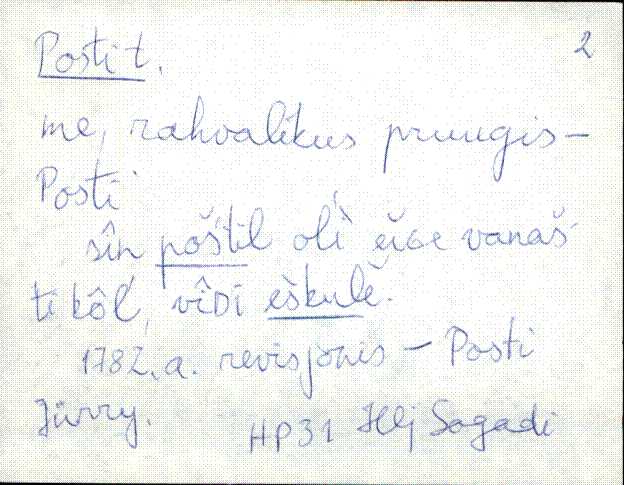 2
Posti t.
me, rahvalikus pruugis -
Posti
sîn poštil oli eice vanaš-
ti kôl', vîDi eškulê.
1782. a. revisjonis - Posti
Jürry. HP31 Hlj Sagadi